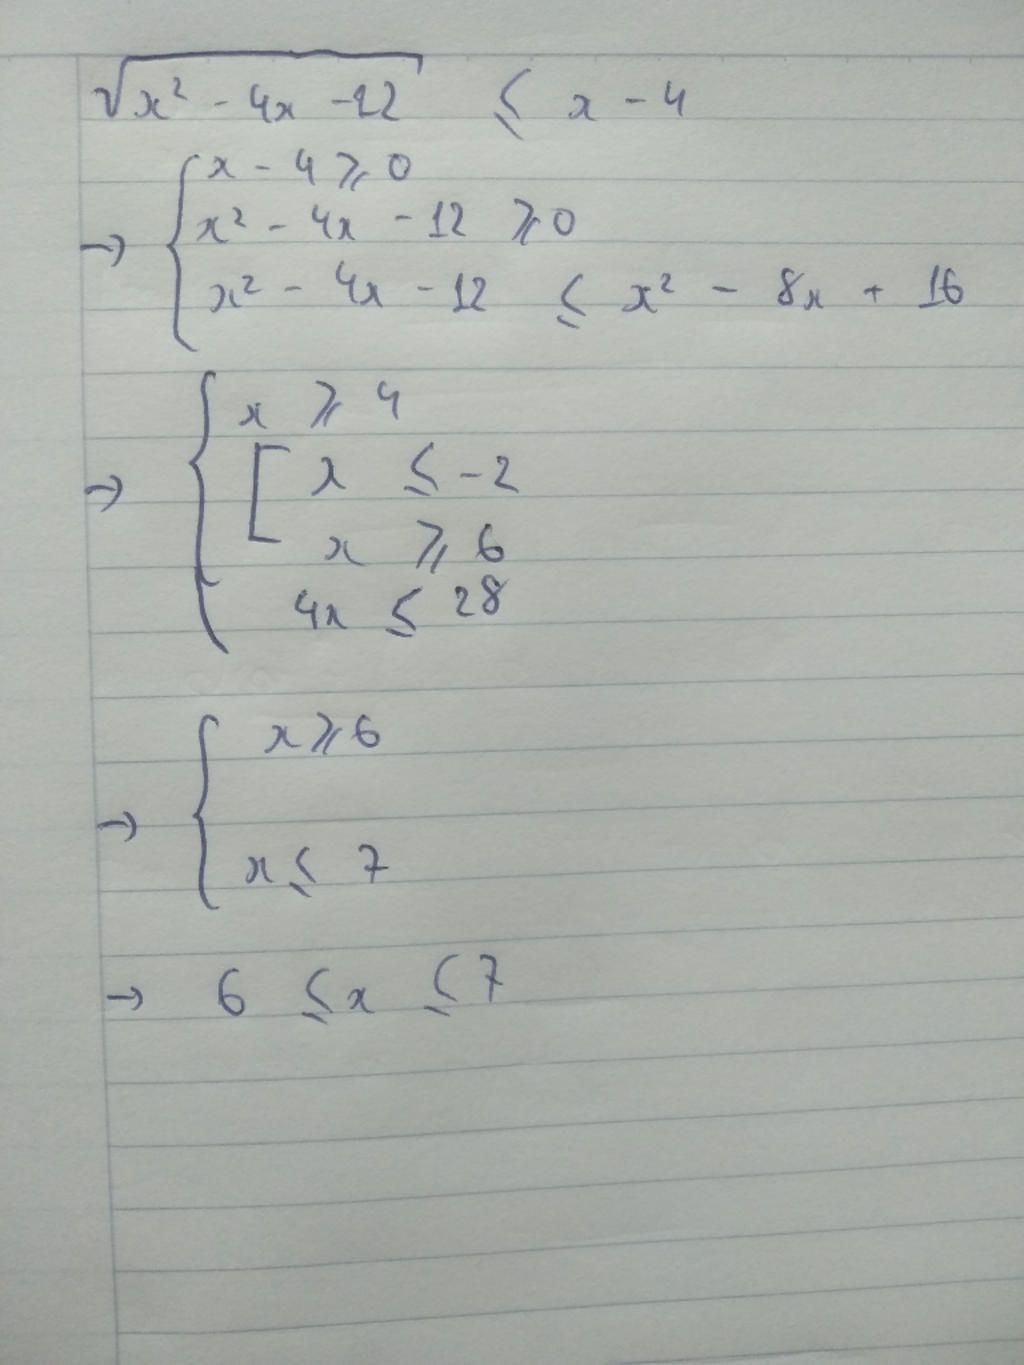 √(x² - 4x - 12) ≤ x - 4
x - 4 ⩾ 0
→ { x² - 4x - 12 ⩾ 0
x² - 4x - 12 ≤ x² - 8x + 16
x ⩾ 4
→ { [ x ≤ -2
x ⩾ 6
4x ≤ 28
x ⩾ 6
→ {
x ≤ 7
→ 6 ≤ x ≤ 7